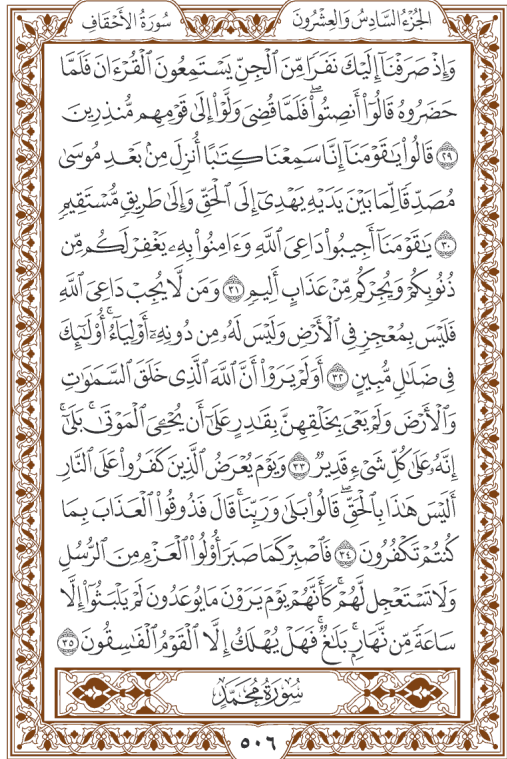 الجُزْءُ السَّادِسُ وَالعِشْرُونَ
سُورَةُ الأَحْقَافِ
وَإِذْ صَرَفْنَآ إِلَيْكَ نَفَرٗا مِّنَ ٱلْجِنِّ يَسْتَمِعُونَ ٱلْقُرْءَانَ فَلَمَّا
حَضَرُوهُ قَالُوٓاْ أَنصِتُواْۖ فَلَمَّا قُضِيَ وَلَّوْاْ إِلَىٰ قَوْمِهِم مُّنذِرِينَ
۝٢٩ قَالُواْ يَٰقَوْمَنَآ إِنَّا سَمِعْنَا كِتَٰبًا أُنزِلَ مِنۢ بَعْدِ مُوسَىٰ
مُصَدِّقٗا لِّمَا بَيْنَ يَدَيْهِ يَهْدِيٓ إِلَى ٱلْحَقِّ وَإِلَىٰ طَرِيقٖ مُّسْتَقِيمٖ
۝٣٠ يَٰقَوْمَنَآ أَجِيبُواْ دَاعِيَ ٱللَّهِ وَءَامِنُواْ بِهِۦ يَغْفِرْ لَكُم مِّن
ذُنُوبِكُمْ وَيُجِرْكُم مِّنْ عَذَابٍ أَلِيمٖ ۝٣١ وَمَن لَّا يُجِبْ دَاعِيَ ٱللَّهِ
فَلَيْسَ بِمُعْجِزٖ فِي ٱلْأَرْضِ وَلَيْسَ لَهُۥ مِن دُونِهِۦٓ أَوْلِيَآءُۚ أُوْلَٰٓئِكَ
فِي ضَلَٰلٖ مُّبِينٍ ۝٣٢ أَوَلَمْ يَرَوْاْ أَنَّ ٱللَّهَ ٱلَّذِي خَلَقَ ٱلسَّمَٰوَٰتِ
وَٱلْأَرْضَ وَلَمْ يَعْيَ بِخَلْقِهِنَّ بِقَٰدِرٍ عَلَىٰٓ أَن يُحْـِۧيَ ٱلْمَوْتَىٰۚ بَلَىٰٓۚ
إِنَّهُۥ عَلَىٰ كُلِّ شَيْءٖ قَدِيرٞ ۝٣٣ وَيَوْمَ يُعْرَضُ ٱلَّذِينَ كَفَرُواْ عَلَى ٱلنَّارِ
أَلَيْسَ هَٰذَا بِٱلْحَقِّۖ قَالُواْ بَلَىٰ وَرَبِّنَاۚ قَالَ فَذُوقُواْ ٱلْعَذَابَ بِمَا
كُنتُمْ تَكْفُرُونَ ۝٣٤ فَٱصْبِرْ كَمَا صَبَرَ أُوْلُواْ ٱلْعَزْمِ مِنَ ٱلرُّسُلِ
وَلَا تَسْتَعْجِل لَّهُمْۚ كَأَنَّهُمْ يَوْمَ يَرَوْنَ مَا يُوعَدُونَ لَمْ يَلْبَثُوٓاْ إِلَّا
سَاعَةٗ مِّن نَّهَارِۭۚ بَلَٰغٞۚ فَهَلْ يُهْلَكُ إِلَّا ٱلْقَوْمُ ٱلْفَٰسِقُونَ ۝٣٥
سُورَةُ مُحَمَّدٍ
٥٠٦